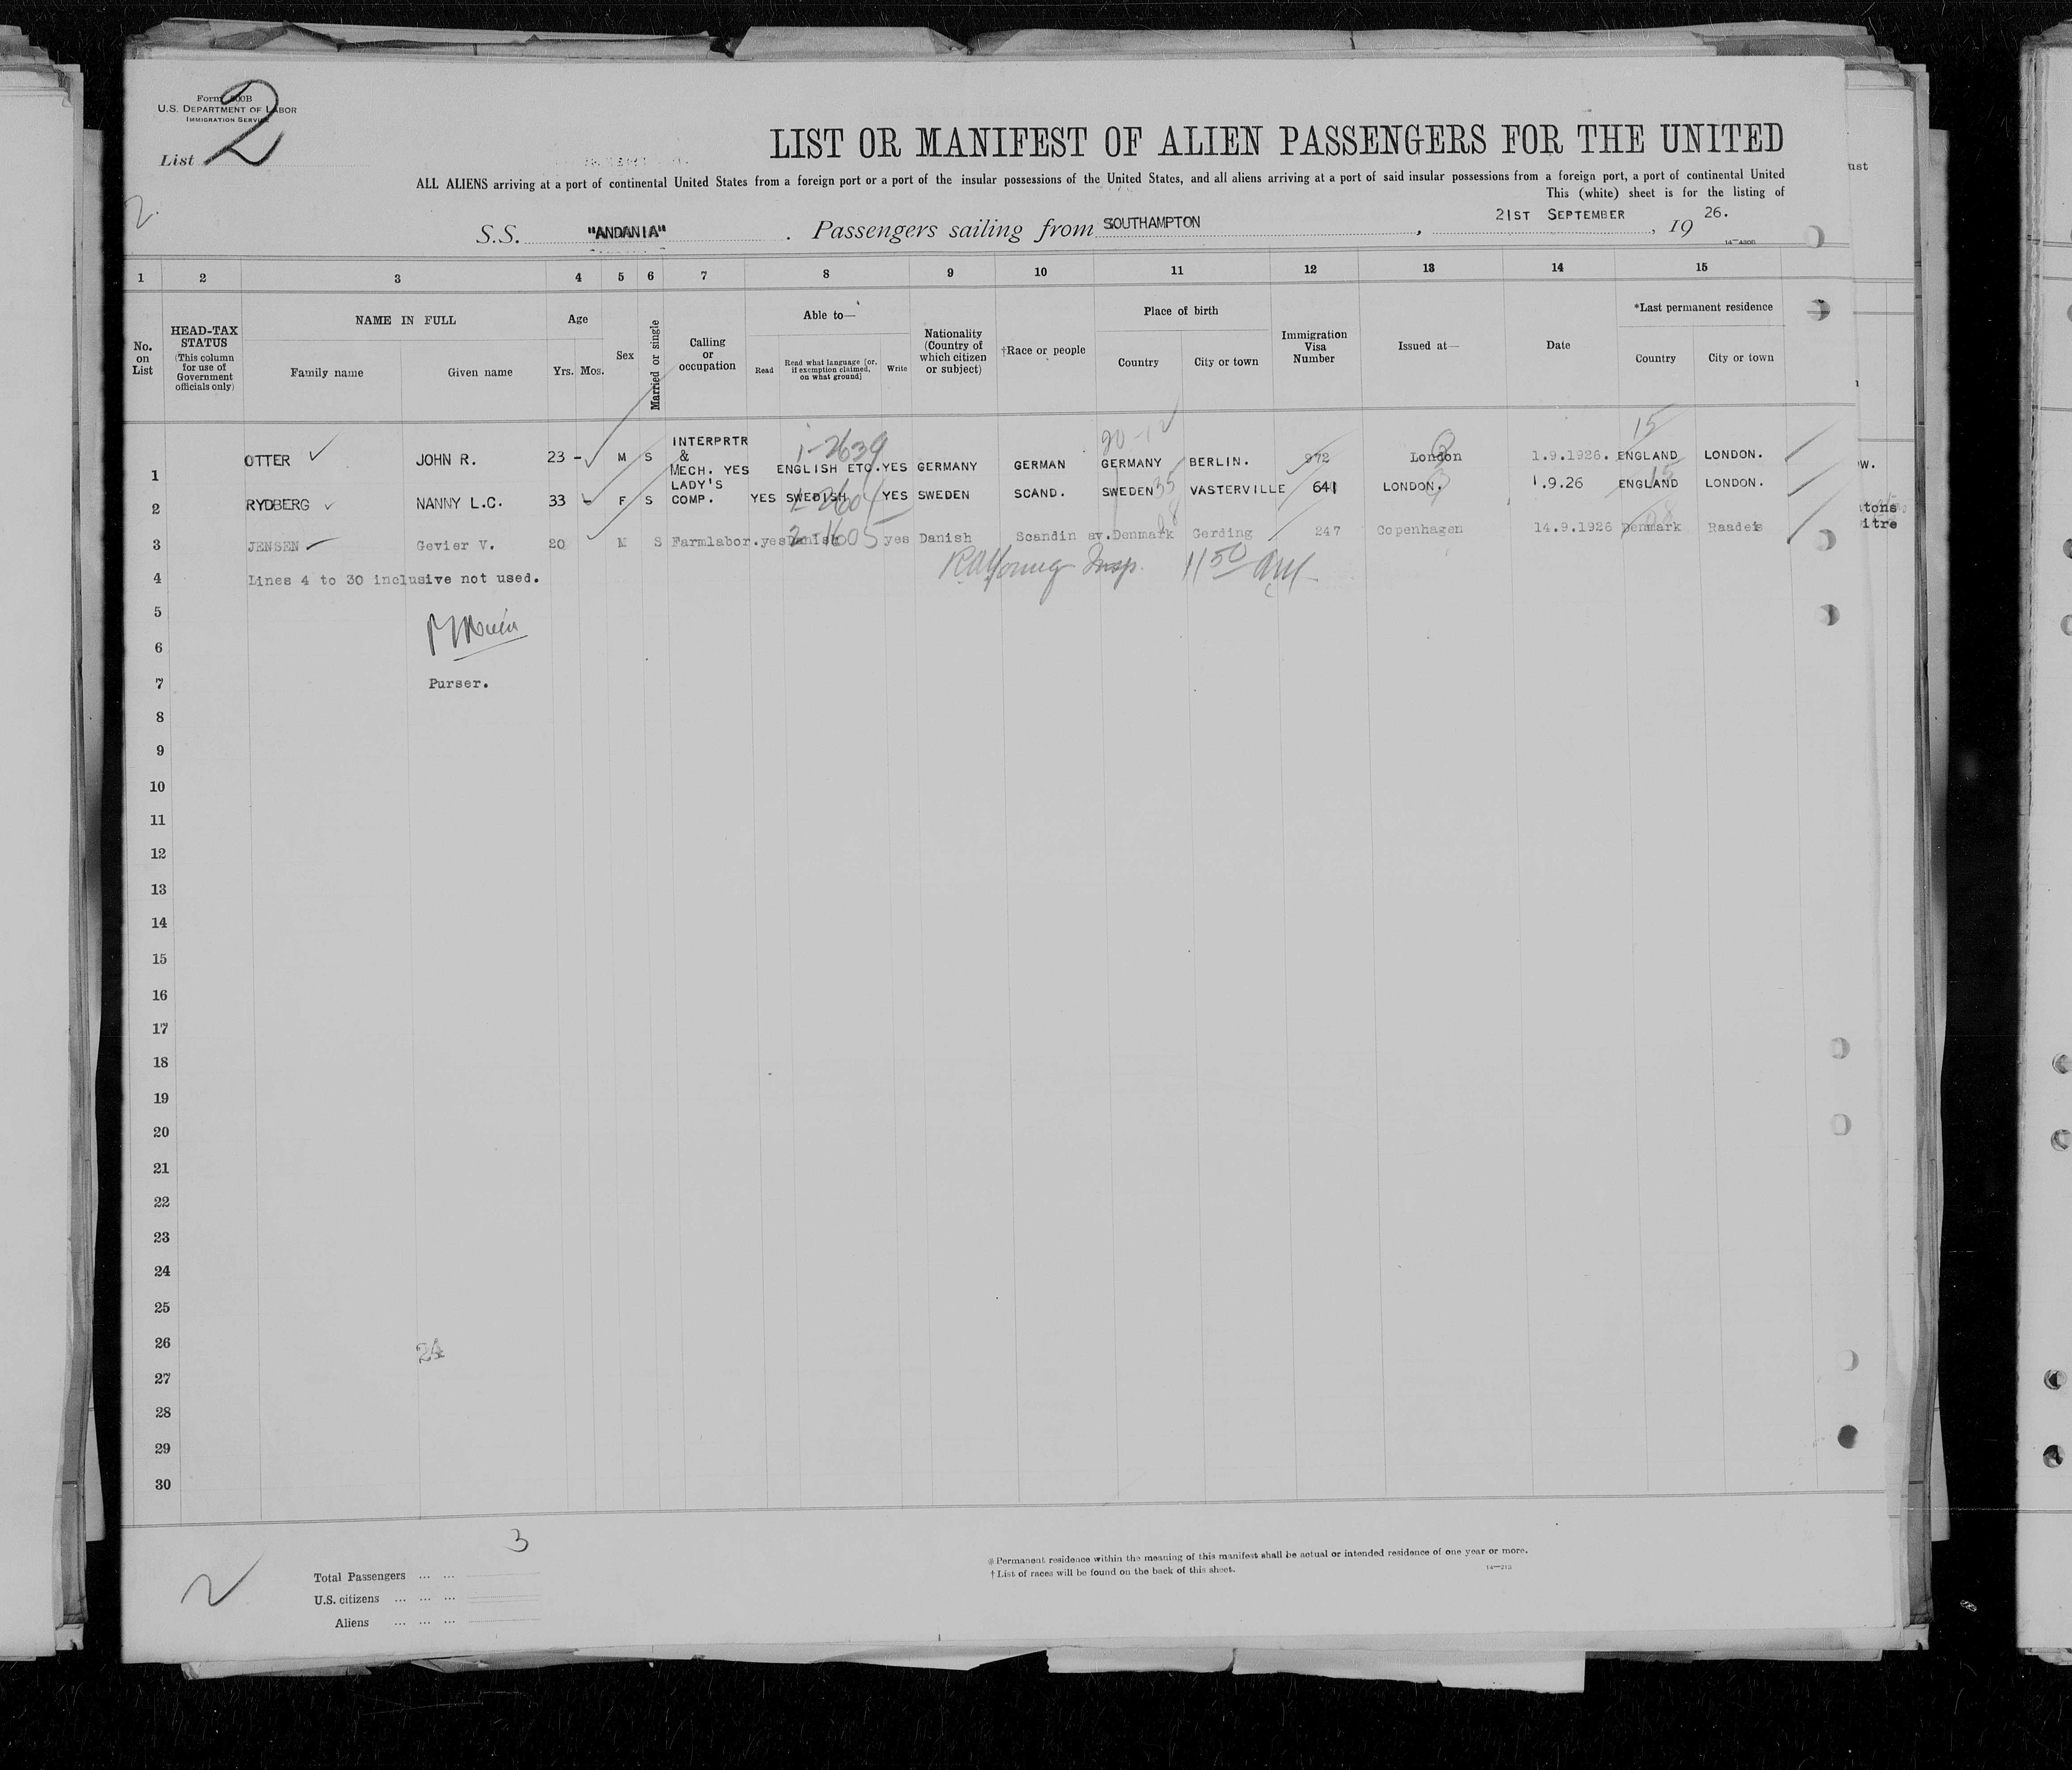 Form 500B
U.S. DEPARTMENT OF LABOR
IMMIGRATION SERVICE
List 2
LIST OR MANIFEST OF ALIEN PASSENGERS FOR THE UNITED
ALL ALIENS arriving at a port of continental United States from a foreign port or a port of the insular possessions of the United States, and all aliens arriving at a port of said insular possessions from a foreign port, a port of continental United
This (white) sheet is for the listing of
2.
S.S. "ANDANIA". Passengers sailing from SOUTHAMPTON, 21ST SEPTEMBER, 19 26.
1 2 3 4 5 6 7 8 9 10 11 12 13 14 15
No. on List
HEAD-TAX STATUS (This column for use of Government officials only)
NAME IN FULL
Family name Given name
Age
Yrs. Mos.
Sex
Married or single
Calling or occupation
Able to—
Read Read what language [or, if exemption claimed, on what ground] Write
Nationality (Country of which citizen or subject)
†Race or people
Place of birth
Country City or town
Immigration Visa Number
Issued at—
Date
*Last permanent residence
Country City or town
20-12 15
1 OTTER JOHN R. 23 - M S INTERPRTR & MECH. YES ENGLISH ETC. YES GERMANY GERMAN GERMANY BERLIN. 972 London 1.9.1926. ENGLAND LONDON.
1-2639
2 RYDBERG NANNY L.C. 33 - F S LADY'S COMP. YES SWEDISH YES SWEDEN SCAND. SWEDEN 35 VASTERVILLE 641 LONDON. 1.9.26 ENGLAND LONDON.
15
3 JENSEN Gevier V. 20 M S Farmlabor. yes Danish yes Danish Scandinav. Denmark Gerding 247 Copenhagen 14.9.1926 Denmark Raadeis
2-1605
4 Lines 4 to 30 inclusive not used.
Young Insp. 11 50 AM
5
6
7 Purser.
8
9
10
11
12
13
14
15
16
17
18
19
20
21
22
23
24
25
26
24
27
28
29
30
3
Total Passengers ... ...
U.S. citizens ... ... ...
Aliens ... ... ...
*Permanent residence within the meaning of this manifest shall be actual or intended residence of one year or more.
†List of races will be found on the back of this sheet.
14—213